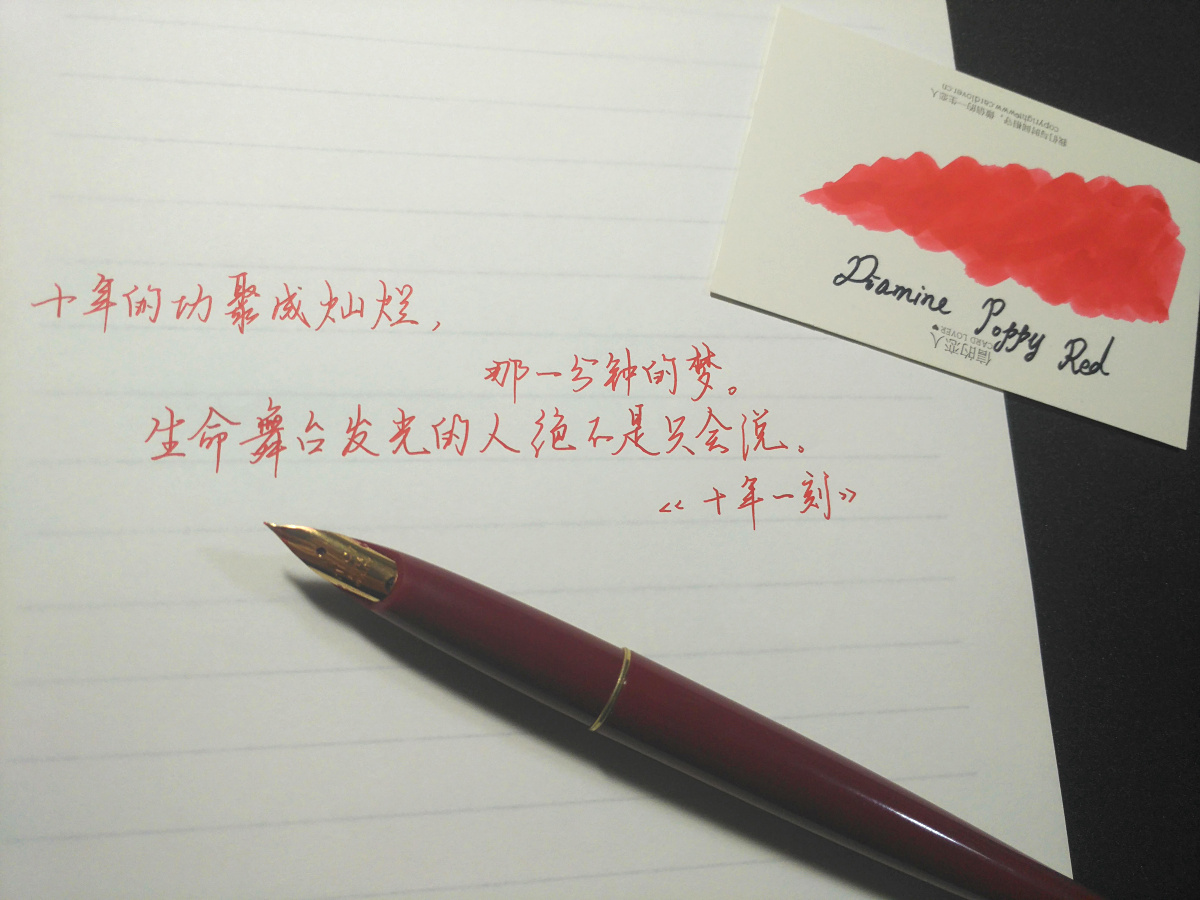 十年的功聚成灿烂，
那一分钟的梦。
生命舞台发光的人绝不是只会说。
《十年一刻》
Diamine Poppy Red
CARD LOVER♥
信的恋人
copyright©www.cardlover.cn